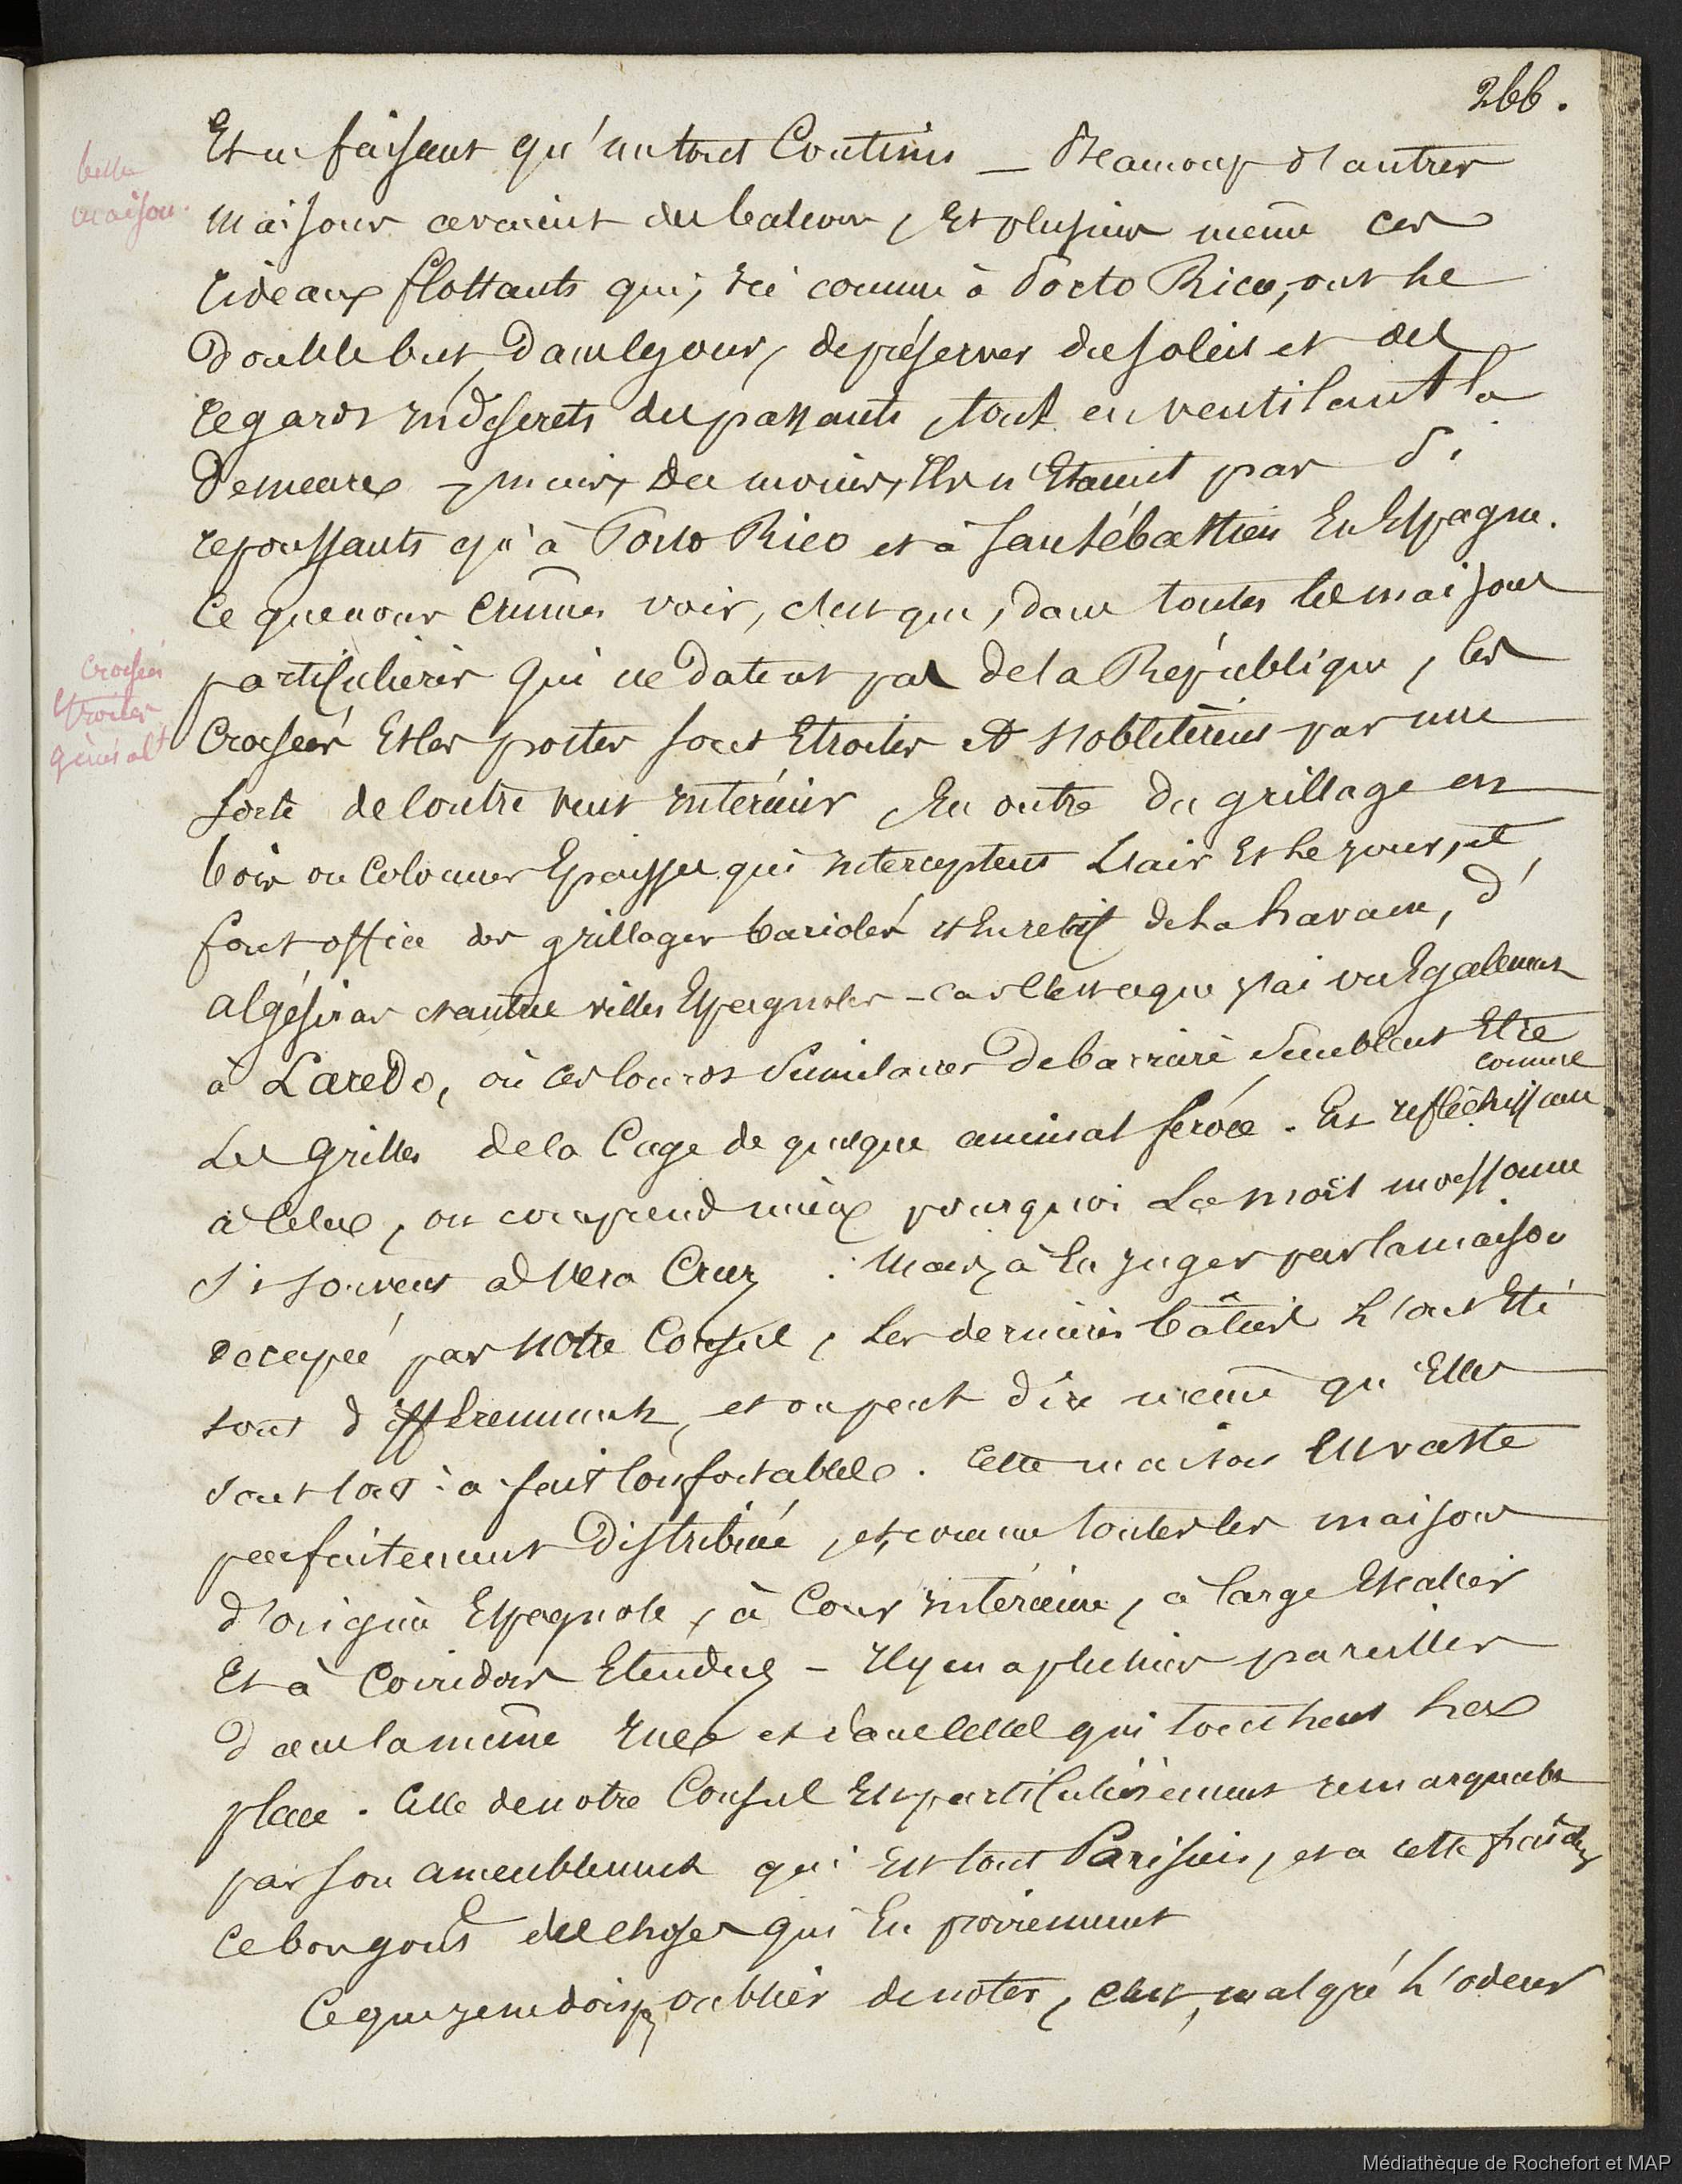 266.
Et ne faisant qu'un tout Continu — Beaucoup d'autres
belles
maisons.
maisons avaient des balcons, Et plusieurs même ces
rideaux flottants qui, ici comme à Porto Rico, ont le
double but, dans le jour, de préserver du soleil et des
regards indiscrets des passants, tout en ventilant la
demeure — mais, du moins, ils n'Etaient pas si
repoussants qu'à Porto Rico et à San Sébastien En Espagne.
Ce que nous crûmes voir, c'est que, dans toutes les maisons
croisées
Etroites
généralt
particulières qui ne datent pas de la République, les
Croisées Et les portes sont Etroites et s'oblitèrent par une
sorte de Contre vent intérieur, En outre du grillage en
bois ou Colonnes Epaisses qui interceptent L'air Et le jour, et
font office des grillages bariolés et en relief de la havane, d'
algésiras et autres villes Espagnoles — car c'est ce que j'ai vu Egalement
à Laredo, où ces lourds Simulacres De barrière Semblent Etre
comme
Les Grilles de la Cage de quelque animal féroce. En réfléchissant
à Cela, on comprend mieux pourquoi La mort moissonne
si souvent à Vera Cruz. Mais, à En juger par la maison
occupée par notre Consul, Les dernières bâties L'ont Eté
tout différemment, et on peut dire même qu'Elles
sont tout à fait Confortables. Cette maison Est vaste
parfaitement Distribuée, et, comme toutes les maisons
d'origine Espagnole, à Cour intérieure, à large Escalier
Et à Corridors Etendus — Il y en a plusieurs pareilles
dans la même rue et dans celles qui touchent la
place. Celle de notre Consul Est particulièrement remarquable
par son ameublement qui Est tout Parisien, et a cette
Ce bon goût des choses qui En proviennent
Ce que je ne dois pas oublier de noter, c'est, malgré L'odeur
Médiathèque de Rochefort et MAP